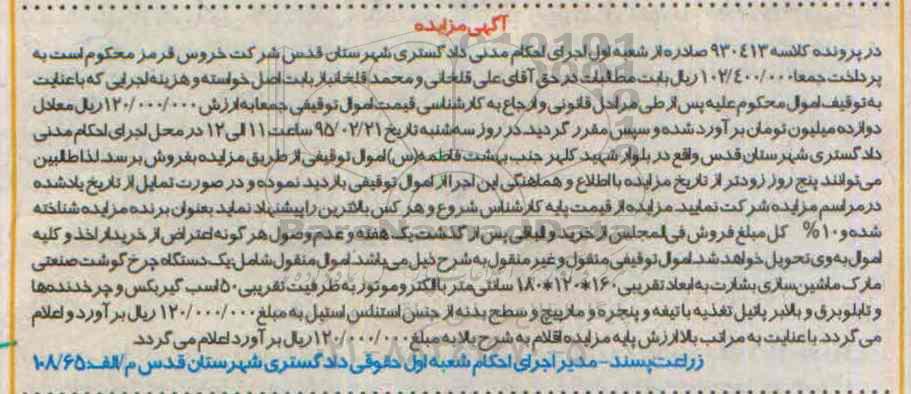 آگهی مزایده
در پرونده کلاسه ۹۳۰۴۱۳ صادره از شعبه اول اجرای احکام مدنی دادگستری شهرستان قدس شرکت خروس قرمز محکوم است به
پرداخت جمعا ۱۰۲/۴۰۰/۰۰۰ ریال بابت مطالبات در حق آقای علی قلخانی و محمد قلخانباز بابت اصل خواسته و هزینه اجرایی که با عنایت
به توقیف اموال محکوم علیه پس از طی مراحل قانونی و ارجاع به کارشناسی قیمت اموال توقیفی جمعا به ارزش ۱۲۰/۰۰۰/۰۰۰ ریال معادل
دوازده میلیون تومان برآورد شده و سپس مقرر گردید در روز سه شنبه تاریخ ۹۵/۰۲/۲۱ ساعت ۱۱ الی ۱۲ در محل اجرای احکام مدنی
دادگستری شهرستان قدس واقع در بلوار شهید کلهر جنب بهشت فاطمه (س) اموال توقیفی از طریق مزایده بفروش برسد. لذا طالبین
می‌توانند پنج روز زودتر از تاریخ مزایده با اطلاع و هماهنگی این اجرا از اموال توقیفی بازدید نموده و در صورت تمایل از تاریخ یادشده
در مراسم مزایده شرکت نمایید. مزایده از قیمت پایه کارشناس شروع و هر کس بالاترین را پیشنهاد نماید بعنوان برنده مزایده شناخته
شده و ۱۰% کل مبلغ فروش فی المجلس از خرید و الباقی پس از گذشت یک هفته و عدم وصول هر گونه اعتراض از خریدار اخذ و کلیه
اموال به وی تحویل خواهد شد. اموال توقیفی منقول و غیر منقول به شرح ذیل می‌باشد. اموال منقول شامل: یک دستگاه چرخ گوشت صنعتی
مارک ماشین سازی بشارت به ابعاد تقریبی ۱۶۰*۱۲۰*۱۸۰ سانتی متر با الکتروموتور به ظرفیت تقریبی ۵۰ اسب گیربکس و چرخدنده‌ها
و تابلو برق و بالابر پاتیل تغذیه با تیغه و پنجره و مارپیچ و سطح بدنه از جنس استنلس استیل به مبلغ ۱۲۰/۰۰۰/۰۰۰ ریال برآورد و اعلام
می گردد. با عنایت به مراتب بالا ارزش پایه مزایده اقلام به شرح بالا به مبلغ ۱۲۰/۰۰۰/۰۰۰ ریال برآورد اعلام می گردد.
زراعت‌پسند - مدیر اجرای احکام شعبه اول حقوقی دادگستری شهرستان قدس م/الف: ۱۰۸/۶۵